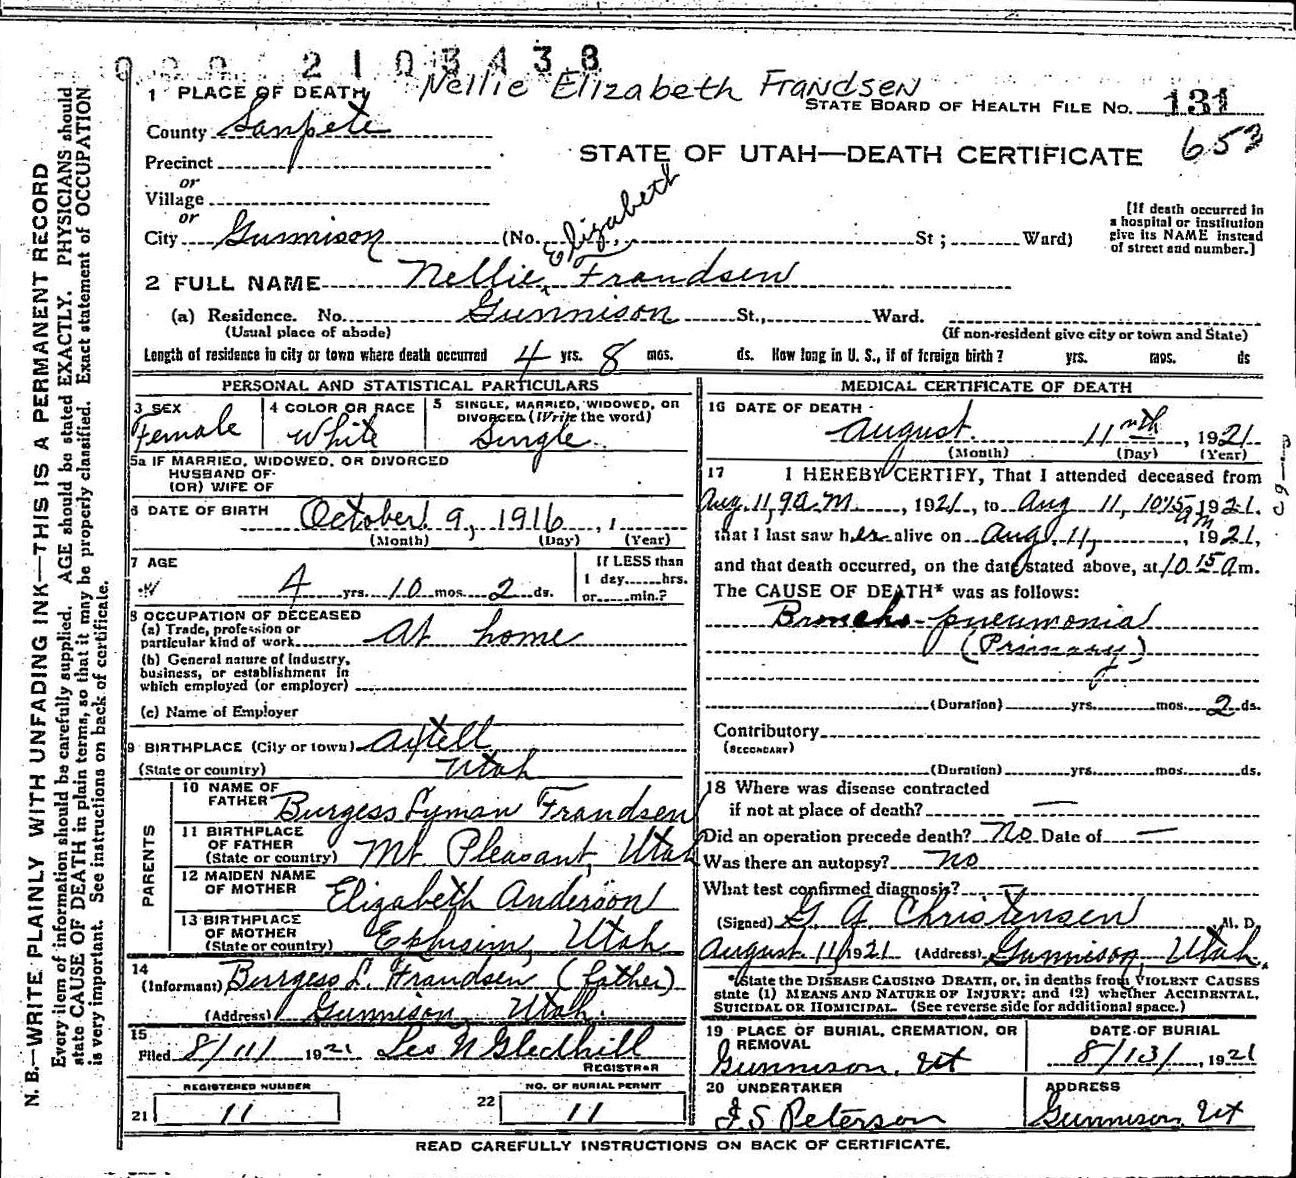 000 2103438
Nellie Elizabeth Frandsen
1 PLACE OF DEATH
STATE BOARD OF HEALTH FILE No. 131
County Sanpete
653
Precinct
STATE OF UTAH—DEATH CERTIFICATE
or
Village
or
City Gunnison (No. St; Ward)
[If death occurred in
a hospital or institution
give its NAME instead
of street and number.]
Elizabeth
2 FULL NAME Nellie Frandsen
(a) Residence. No. Gunnison St., Ward.
(Usual place of abode) (If non-resident give city or town and State)
Length of residence in city or town where death occurred 4 yrs. 8 mos. ds. How long in U. S., if of foreign birth? yrs. mos. ds
PERSONAL AND STATISTICAL PARTICULARS
3 SEX
Female
4 COLOR OR RACE
White
5 SINGLE, MARRIED, WIDOWED, OR
DIVORCED (Write the word)
Single
5a IF MARRIED, WIDOWED, OR DIVORCED
HUSBAND OF
(OR) WIFE OF
6 DATE OF BIRTH
October 9, 1916
(Month) (Day) (Year)
7 AGE
4 yrs. 10 mos. 2 ds.
If LESS than
1 day hrs.
or min.?
8 OCCUPATION OF DECEASED
(a) Trade, profession or
particular kind of work At home
(b) General nature of industry,
business, or establishment in
which employed (or employer)
(c) Name of Employer
9 BIRTHPLACE (City or town) Axtell
(State or country) Utah
PARENTS
10 NAME OF
FATHER Burgess Lyman Frandsen
11 BIRTHPLACE
OF FATHER
(State or country) Mt Pleasant, Utah
12 MAIDEN NAME
OF MOTHER Elizabeth Anderson
13 BIRTHPLACE
OF MOTHER
(State or country) Ephriam, Utah
14
(Informant) Burgess L. Frandsen (father)
(Address) Gunnison, Utah.
15
Filed 8/11/ 1921 Leo N Gledhill
REGISTRAR
REGISTERED NUMBER
21 11
NO. OF BURIAL PERMIT
22 11
MEDICAL CERTIFICATE OF DEATH
16 DATE OF DEATH
August 11nth, 1921
(Month) (Day) (Year)
17 I HEREBY CERTIFY, That I attended deceased from
Aug. 11, 9 a.m., 1921, to Aug 11, 10:15 am, 1921.
that I last saw her alive on Aug. 11, 1921,
and that death occurred, on the date stated above, at 10 15 a m.
The CAUSE OF DEATH* was as follows:
Broncho-pneumonia
(Primary)
(Duration) yrs. mos. 2 ds.
Contributory
(SECONDARY)
(Duration) yrs. mos. ds.
18 Where was disease contracted
if not at place of death? —
Did an operation precede death? No Date of —
Was there an autopsy? no
What test confirmed diagnosis? —
(Signed) G. A. Christensen, M. D.
August 11, 1921 (Address) Gunnison, Utah.
*State the DISEASE CAUSING DEATH, or, in deaths from VIOLENT CAUSES
state (1) MEANS AND NATURE OF INJURY; and (2) whether ACCIDENTAL,
SUICIDAL OR HOMICIDAL. (See reverse side for additional space.)
19 PLACE OF BURIAL, CREMATION, OR
REMOVAL
Gunnison, Ut
DATE OF BURIAL
8/13/, 1921
20 UNDERTAKER
J S Peterson
ADDRESS
Gunnison, Ut
READ CAREFULLY INSTRUCTIONS ON BACK OF CERTIFICATE.
N. B.—WRITE PLAINLY WITH UNFADING INK—THIS IS A PERMANENT RECORD
Every item of information should be carefully supplied. AGE should be stated EXACTLY. PHYSICIANS should
state CAUSE OF DEATH in plain terms, so that it may be properly classified. Exact statement of OCCUPATION
is very important. See instructions on back of certificate.